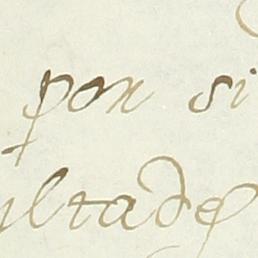 por si
ultade